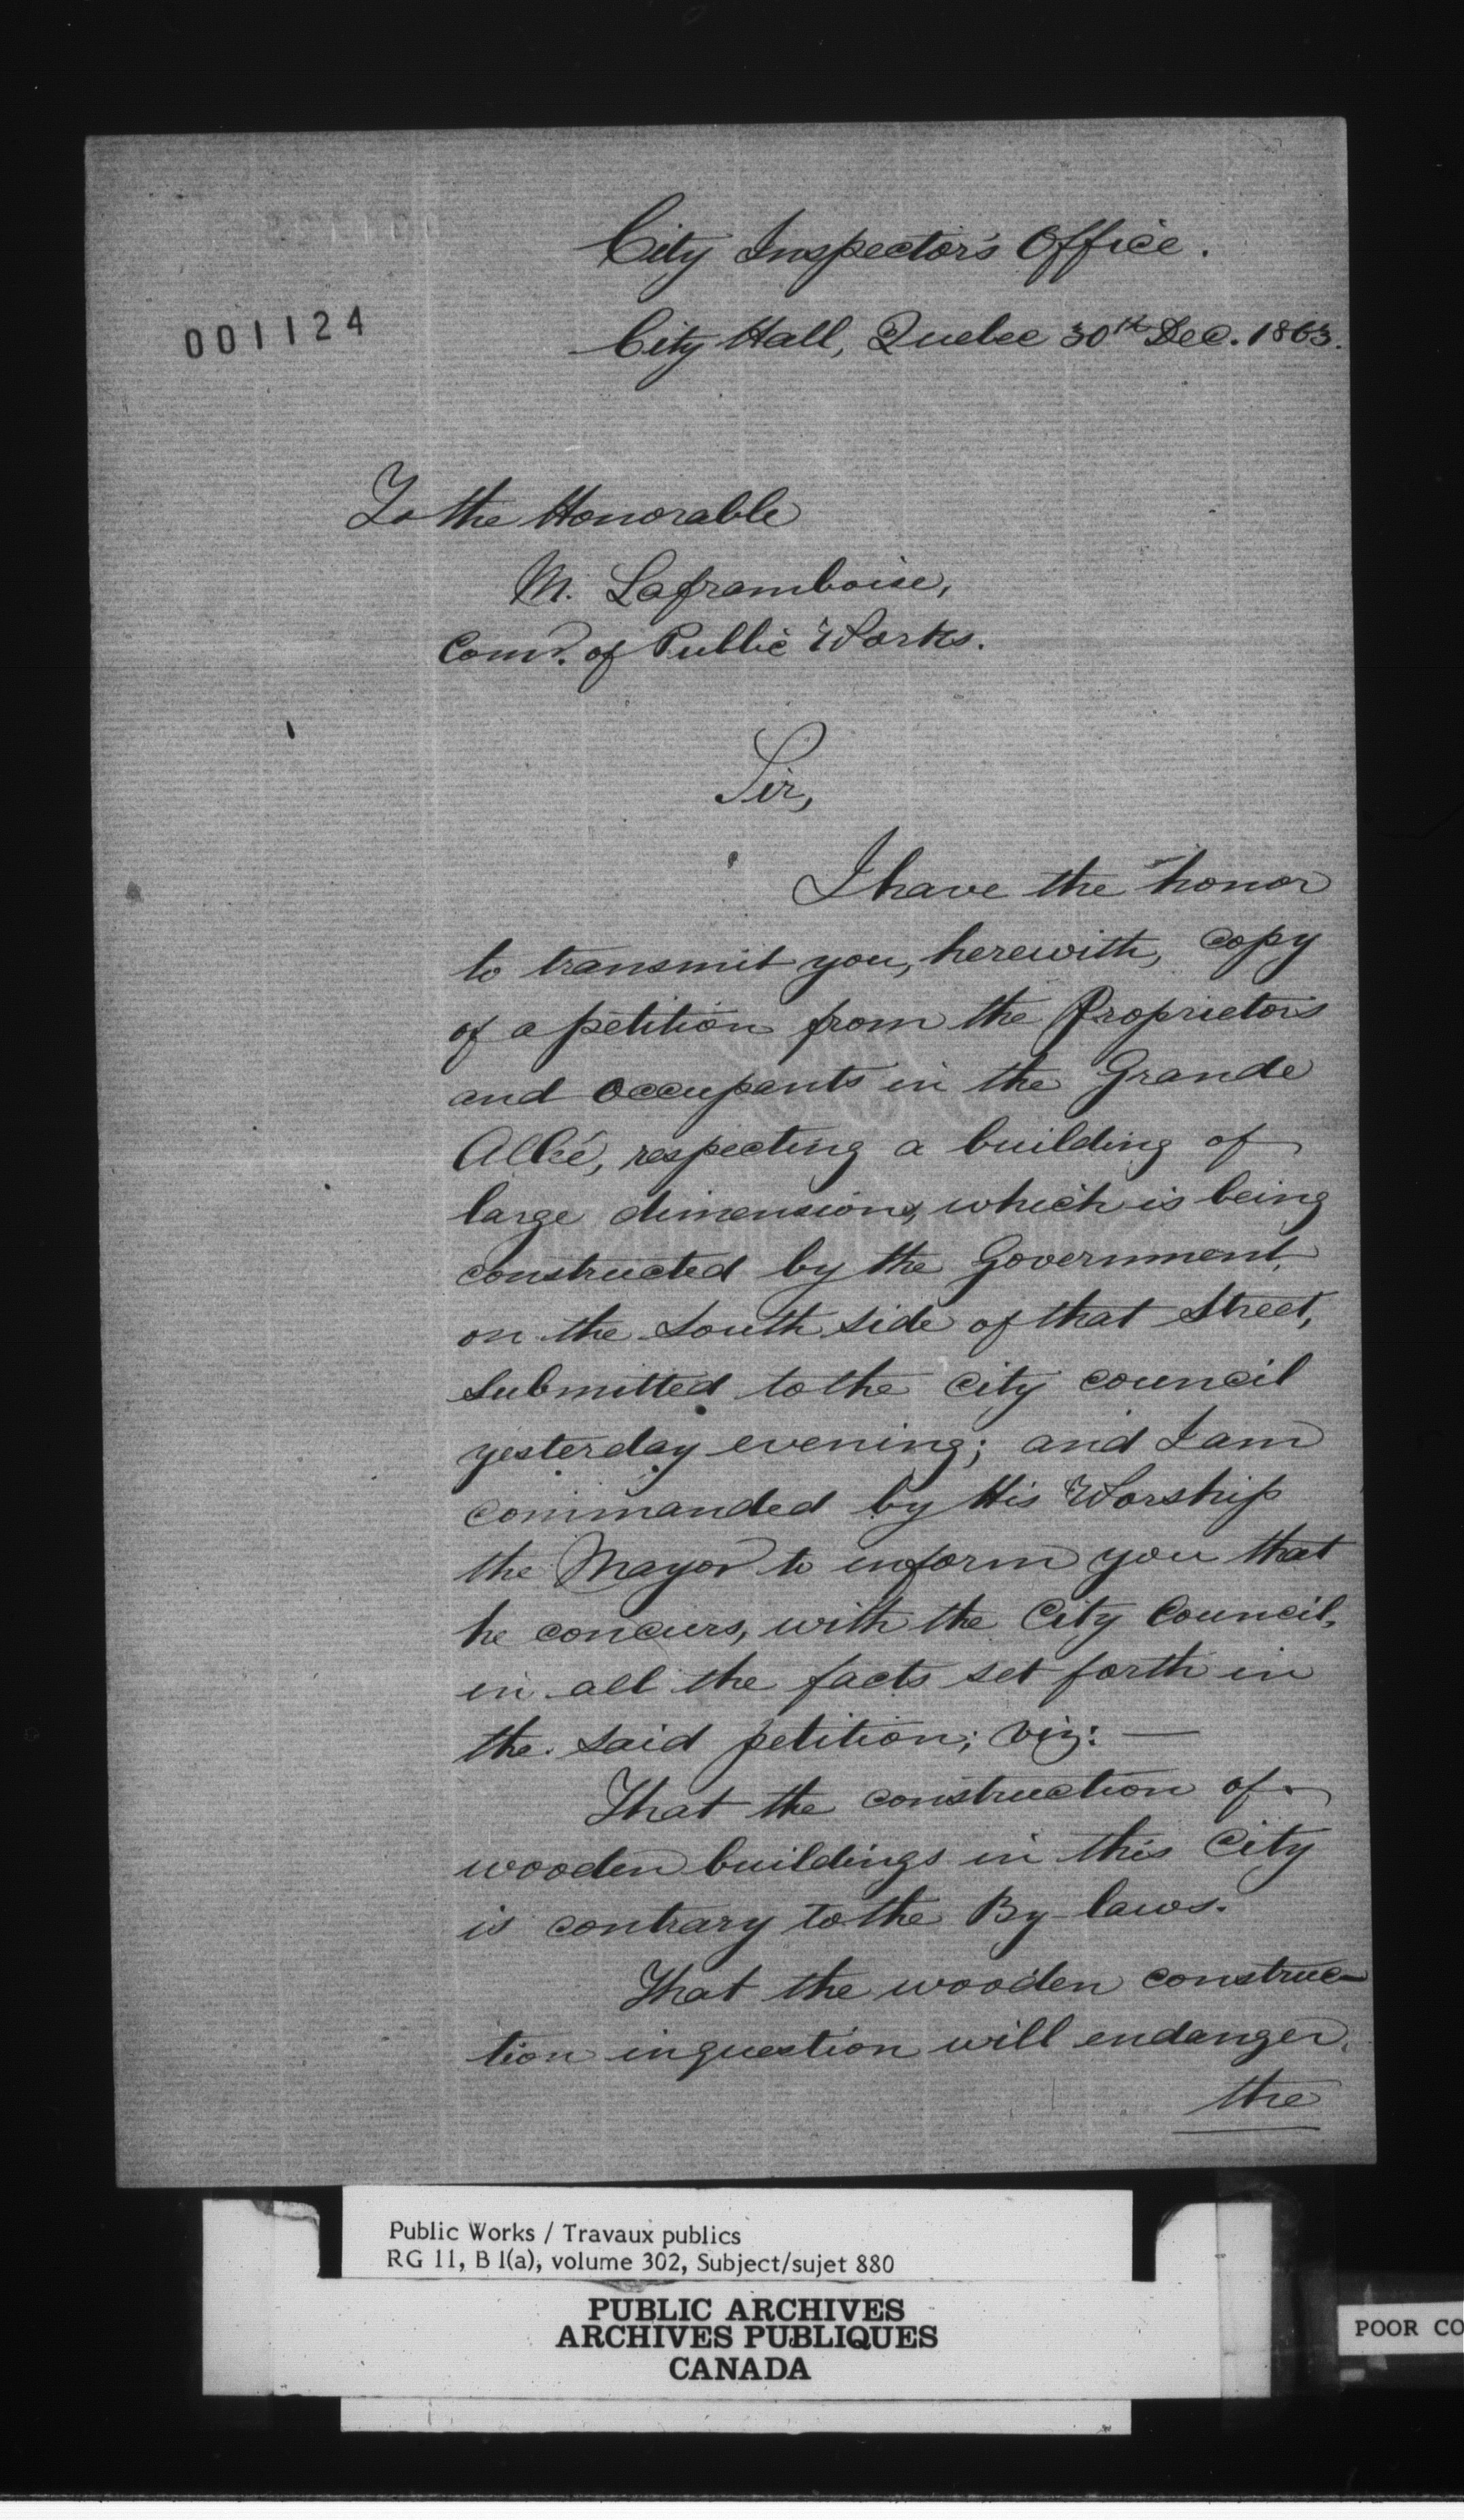 City Inspector's Office.
001124
City Hall, Quebec 30th Dec. 1863.
To the Honorable
M. Laframboise,
Comr. of Public Works.
Sir,
I have the honor
to transmit you, herewith, copy
of a petition from the Proprietors
and occupants in the Grande
Allée, respecting a building of
large dimensions, which is being
constructed by the Government,
on the South side of that Street,
submitted to the City Council
yesterday evening; and I am
commanded by His Worship
the Mayor to inform you that
he concurs, with the City Council,
in all the facts set forth in
the said petition; viz: —
That the construction of
wooden buildings in this City
is contrary to the By-laws.
That the wooden construc-
tion in question will endanger
the
Public Works / Travaux publics
RG 11, B 1(a), volume 302, Subject/sujet 880
PUBLIC ARCHIVES
ARCHIVES PUBLIQUES
CANADA
POOR CO